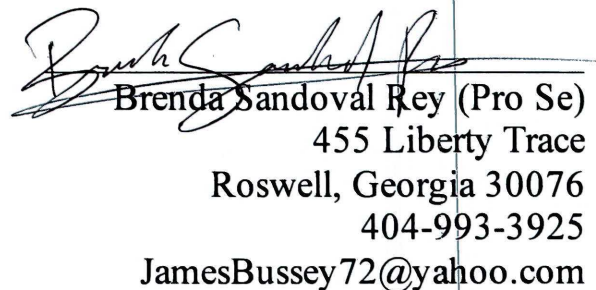 Brenda Sandoval Rey (Pro Se)
455 Liberty Trace
Roswell, Georgia 30076
404-993-3925
JamesBussey72@yahoo.com